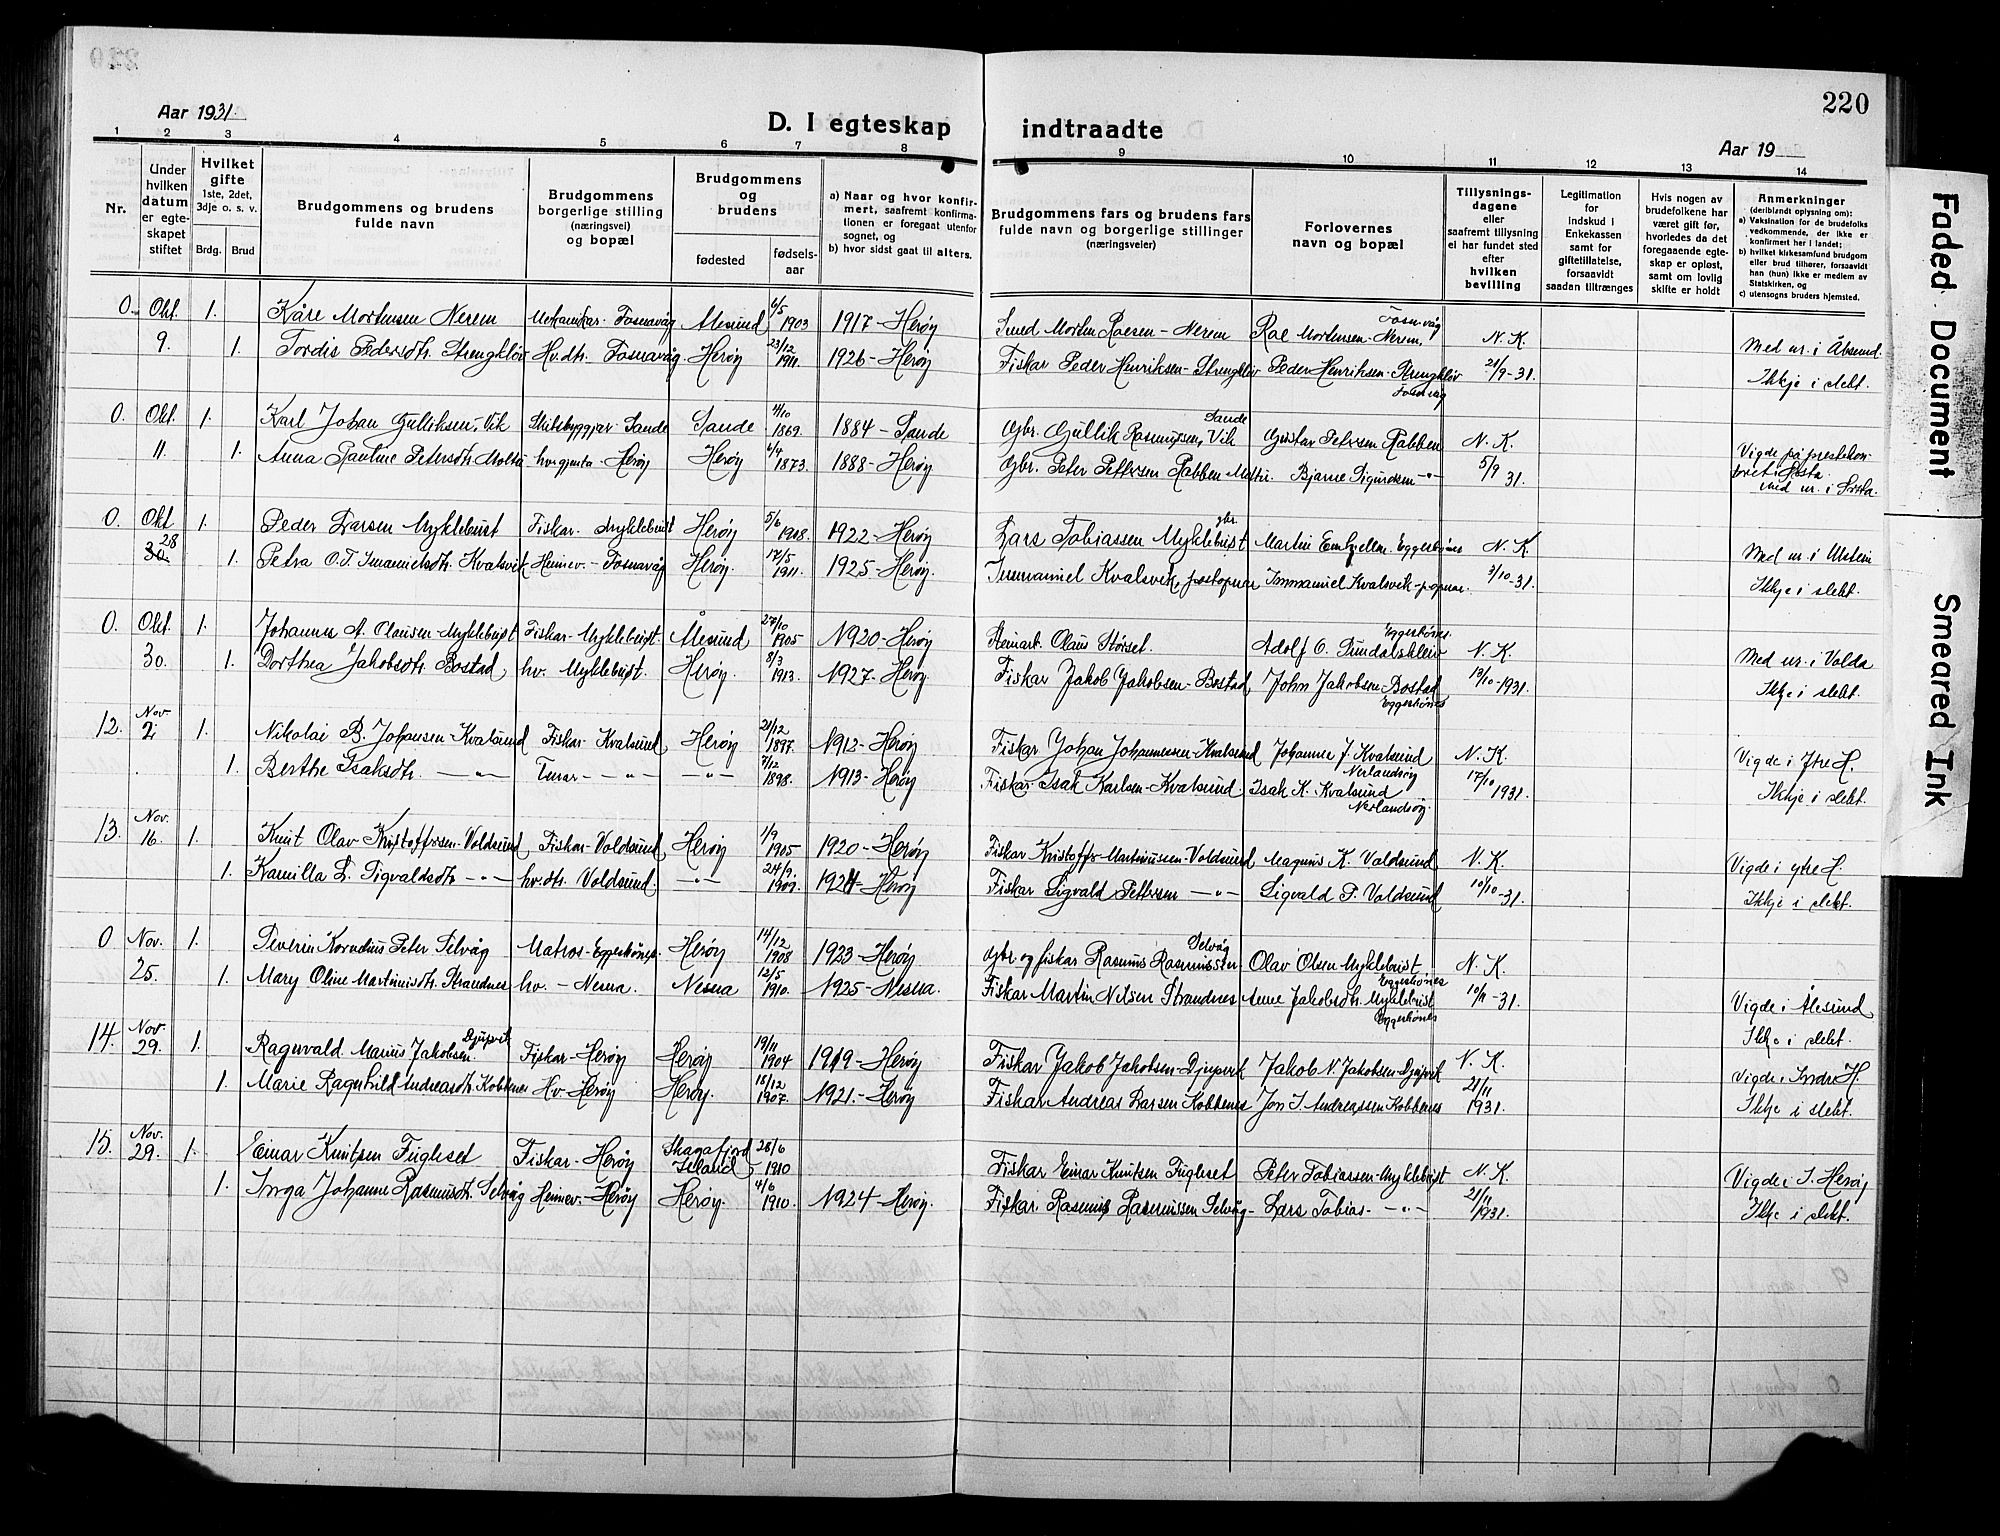 220
Aar 1931.
D. I egteskap indtraadte
Aar 19
1 2 3 4 5 6 7 8 9 10 11 12 13 14
Nr.
Under hvilken datum er egteskapet stiftet
Hvilket gifte 1ste, 2det, 3dje o. s. v.
Brdg. Brud
Brudgommens og brudens fulde navn
Brudgommens borgerlige stilling (næringsvei) og bopæl
Brudgommens og brudens
fødested
fødsels-aar
a) Naar og hvor konfirmert, saafremt konfirmationen er foregaat utenfor sognet, og
b) hvor sidst gaat til alters.
Brudgommens fars og brudens fars fulde navn og borgerlige stillinger (næringsveier)
Forlovernes navn og bopæl
Tillysningsdagene eller saafremt tillysning ei har fundet sted efter hvilken bevilling
Legitimation for indskud i Enkekassen samt for giftetillatelse, forsaavidt saadan tiltrænges
Hvis nogen av brudefolkene har været gift før, hvorledes da det foregaaende egteskap er opløst, samt om lovlig skifte er holdt
Anmerkninger (deriblandt oplysning om):
a) Vaksination for de brudefolks vedkommende, der ikke er konfirmert her i landet;
b) hvilket kirkesamfund brudgom eller brud tilhører, forsaavidt han (hun) ikke er medlem av Statskirken, og
c) utensogns bruders hjemsted.
0. Okt. 1. Kåre Mortensen Nerem Mekanikar. Fosnavåg 6/5 1903 1917 - Herøy Smed Morten Roesen - Nerem Roe Mortensen - Nerem, Fosnvåg N. K.
9. 1. Tordis Pedersdtr. Hv.dtr. Fosnavåg Herøy 23/12 1911. 1926 - Herøy Fiskar Peder Henriksen - Peder Henriksen - Fosnvåg 21/9-31. Ikkje i slekt.
0. Okt. 1. Karl Johan Gulliksen, Vik Sande Sande 4/10 1869. 1884 - Sande Gbr. Gullik Rasmussen, Vik Sande Gustav Petersen Rabben N. K.
11. 1. Anna Pauline Petersdtr Herøy Herøy 6/4 1873. 1888 - Herøy Gbr. Peter Pettersen Rabben Bjarne Sigurdsen -"- 5/9 31. Vigde på
0. Okt 1. Peder Larsen Myklebust Fiskar. Myklebust Herøy 5/6 1908. 1922 - Herøy Lars Tobiassen Myklebust gbr. Martin Eggesbønes N. K.
28 30 1. Petra O.T. Kvalsvik Heimev. - Fosnavåg Herøy. 17/5 1911. 1925 - Herøy. Immanuel Kvalsvik, postopnar Immanuel Kvalsvik - p.opnar. 3/10-31. Ikkje i slekt.
0. Okt. 1. Johannes A. Olausen - Myklebust Fiskar - Myklebust. 27/10 1905 1920 - Herøy Steinarb. Olaus Størset. Adolf O. Eggesbønes. N. K. Med ur. i Volda
30. 1. Dorthea Jakobsdtr. Bostad, hv. Myklebust. Herøy. 8/3 1913. 1927 - Herøy Fiskar Jakob Jakobsen - Bostad John Jakobsen - Bostad Eggesbønes 10/10-1931. Ikkje i slekt.
12. Nov. 2. 1. Nikolai B. Johansen - Kvalsund Fiskar - Kvalsund Herøy 1897. 1912 - Herøy Fiskar Johan Johannessen - Kvalsund Johannes J. Kvalsund Nerlandsøy N. K. Vigde i Ytre H.
1. Berthe Isaksdtr. -"- -"- -"- 7/12 1898. 1913 - Herøy Fiskar Isak Karlsen - Kvalsund. Isak K. Kvalsund Nerlandsøy. 17/10 1931. Ikkje i slekt.
13. Nov. 16. 1. Knut Olav Kristoffersen - Voldsund Fiskar - Voldsund, Herøy 1/9 1905 1920 - Herøy Fiskar Kristoffer Martinussen - Voldsund Magnus K. Voldsund N. K. Vigde i ytre H.
1. Kamilla L. Sigvaldsdtr -"- hv.dtr. Voldsund. -"- 24/9. 1909. 1924 - Herøy Fiskar Sigvald Pettersen -"- Sigvald P. Voldsund 10/10-31. Ikkje i slekt.
0 Nov. 1. Severin Kornelius Peter Selvåg Matros - Eggesbønes. Herøy 14/12 1908 1923 - Herøy Gbr. og fiskar Rasmus Rasmussen Selvåg Olav Olsen Myklebust Eggesbønes N. K.
25. 1. Mary Oline Martinusdtr. Strandnes hv. - Nesna. Nesna 12/5 1910. 1925 - Nesna. Fiskar Martin Nilsen Strandnes Anne Jakobsdtr. Myklebust Eggesbønes 10/11-31. Vigde i Ålesund Ikkje i slekt.
14. Nov. 29. 1. Ragnvald Marius Jakobsen Djupvik Fiskar - Herøy Herøy 19/11 1904 1919 - Herøy Fiskar Jakob Jakobsen - Djupvik Jakob N. Jakobsen - Djupvik N. K. Vigde i Indre H.
1. Marie Ragnhild Andreasdtr. Kobbenes Hv. - Herøy Herøy. 18/12 1907. 1921. - Herøy Fiskar Andreas Larsen Kobbenes Jon I. Andreassen Kobbenes 21/11 1931. Ikkje i slekt.
15. Nov. 29. 1. Einar Knutsen Fugleset Fiskar - Herøy Skagafjord Island 28/6 1910 Fiskar Einar Knutsen Fugleset Peter Tobiassen - Myklebust N. K. Vigde i I. Herøy
1. Inga Johanne Rasmusdtr. Selvåg Heimev. - Herøy Herøy. 4/6 1910. 1924 - Herøy. Fiskar Rasmus Rasmussen Selvåg - Lars Tobias. -"- 21/11 1931. Ikkje i slekt.
Faded Document
Smeared Ink